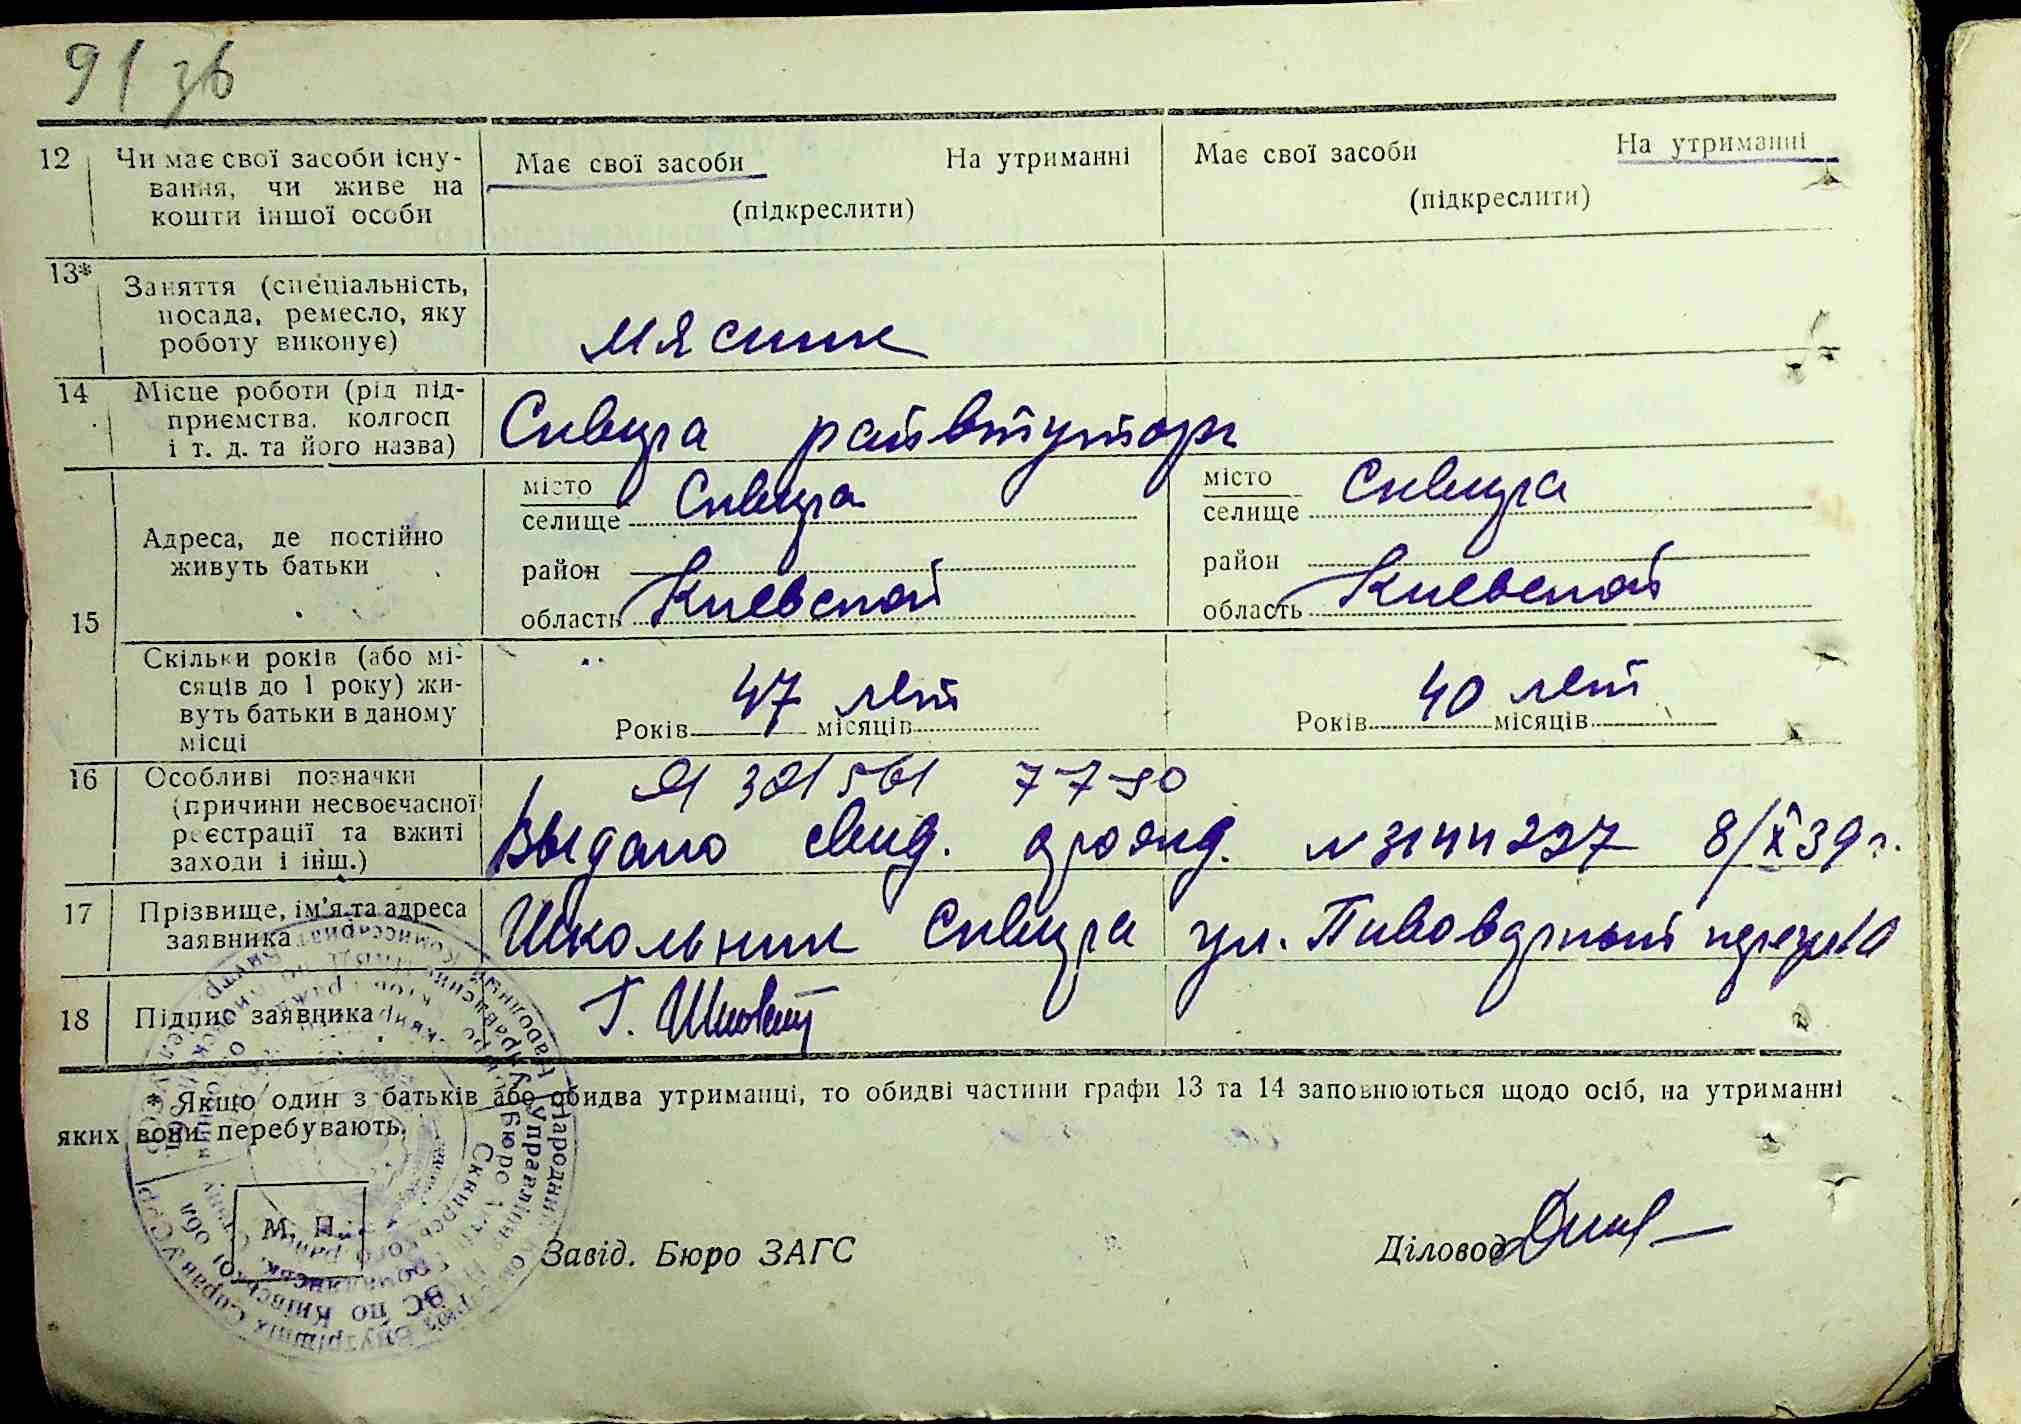 91 зв
12 Чи має свої засоби існу-
вання, чи живе на
кошти іншої особи
Має свої засоби На утриманні
(підкреслити)
Має свої засоби На утриманні
(підкреслити)
13* Заняття (спеціальність,
посада, ремесло, яку
роботу виконує)
мясник
14 Місце роботи (рід під-
приємства, колгосп
і т. д. та його назва)
Сквира
15 Адреса, де постійно
живуть батьки
місто
селище Сквира
район
область Киевской
місто
селище Сквира
район
область Киевской
Скільки років (або мі-
сяців до 1 року) жи-
вуть батьки в даному
місці
Років 47 лет місяців
Років 40 лет місяців
16 Особливі позначки
(причини несвоєчасної
реєстрації та вжиті
заходи і інш.)
321561 7-7-90
Выдано свид. о рожд. № 3144227 8/X 39 г.
17 Прізвище, ім'я та адреса
заявника
Школьник Сквира ул. Пивоварный
18 Підпис заявника
Г.
Якщо один з батьків або обидва утриманці, то обидві частини графи 13 та 14 заповнюються щодо осіб, на утриманні
яких вони перебувають.
М. П.
Завід. Бюро ЗАГС
Діловод